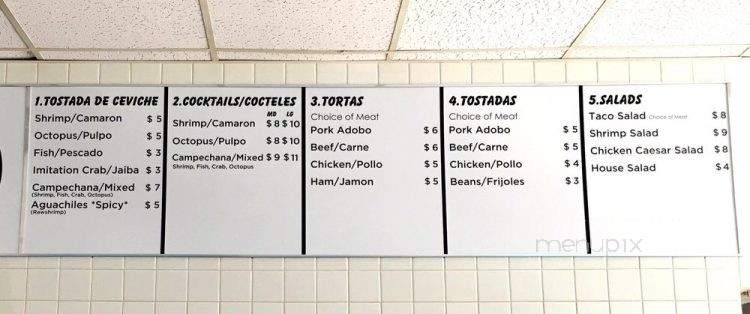 1.TOSTADA DE CEVICHE
Shrimp/Camaron $ 5
Octopus/Pulpo $ 5
Fish/Pescado $ 3
Imitation Crab/Jaiba $ 3
Campechana/Mixed $ 7
(Shrimp, Fish, Crab, Octopus)
Aguachiles *Spicy* $ 5
(Rawshrimp)
2.COCKTAILS/COCTELES
MD LG
Shrimp/Camaron $ 8 $ 10
Octopus/Pulpo $ 8 $ 10
Campechana/Mixed $ 9 $ 11
Shrimp, Fish, Crab, Octopus
3.TORTAS
Choice of Meat
Pork Adobo $ 6
Beef/Carne $ 6
Chicken/Pollo $ 5
Ham/Jamon $ 5
4.TOSTADAS
Choice of Meat
Pork Adobo $ 5
Beef/Carne $ 5
Chicken/Pollo $ 4
Beans/Frijoles $ 3
5.SALADS
Taco Salad Choice of Meat $ 8
Shrimp Salad $ 9
Chicken Caesar Salad $ 8
House Salad $ 4
menupix